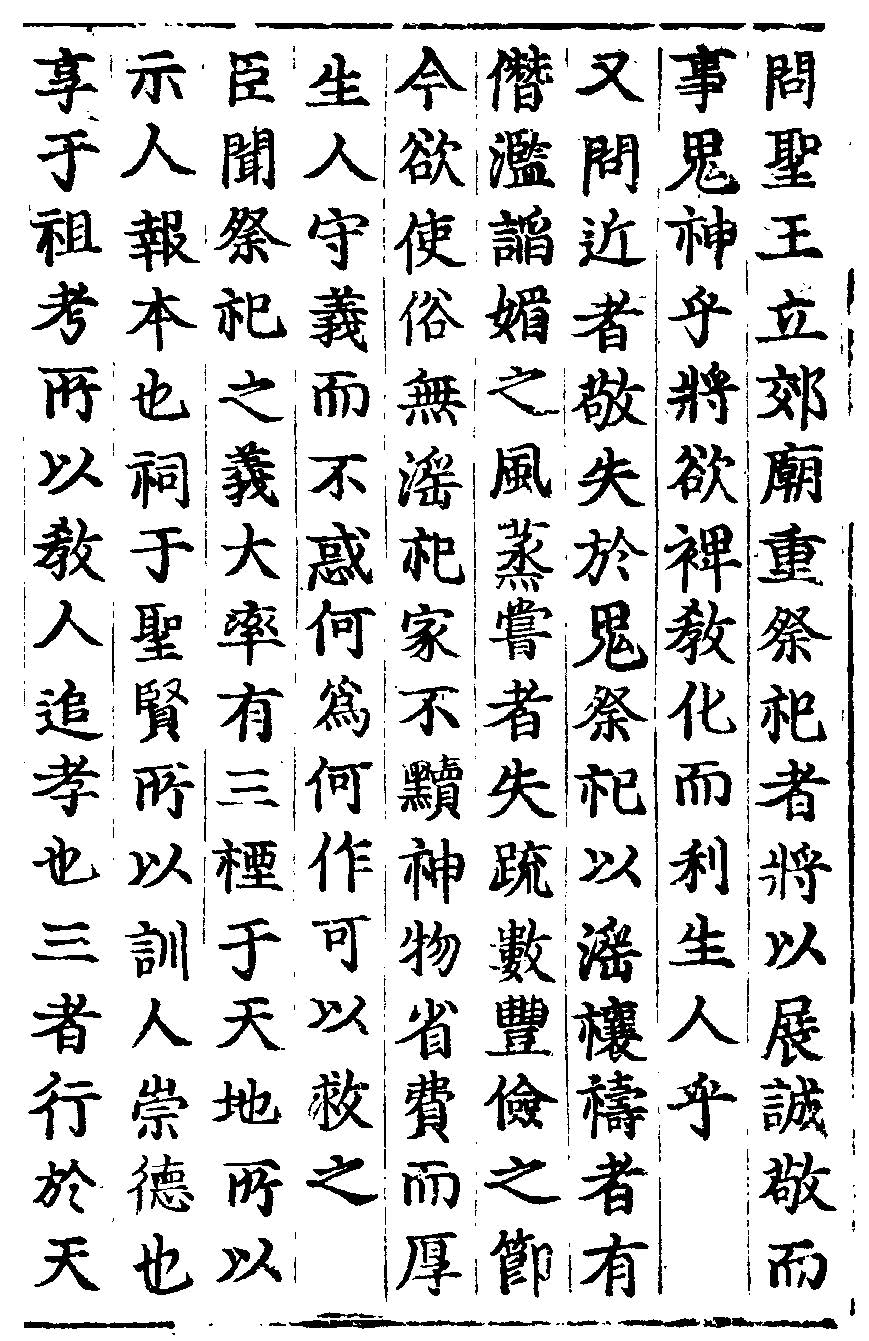 問聖王立郊廟重祭祀者將以展誠敬而
事鬼神乎將欲裨教化而利生人乎
又問近者敬失於鬼祭祀以滛禳禱者有
僭濫謟媚之風蒸嘗者失䟽數豐儉之節
今欲使俗無滛祀家不黷神物省費而厚
生人守義而不惑何爲何作可以救之
臣聞祭祀之義大率有三禋于天地所以
示人報本也祠于聖賢所以訓人崇德也
享于祖考所以教人追孝也三者行於天